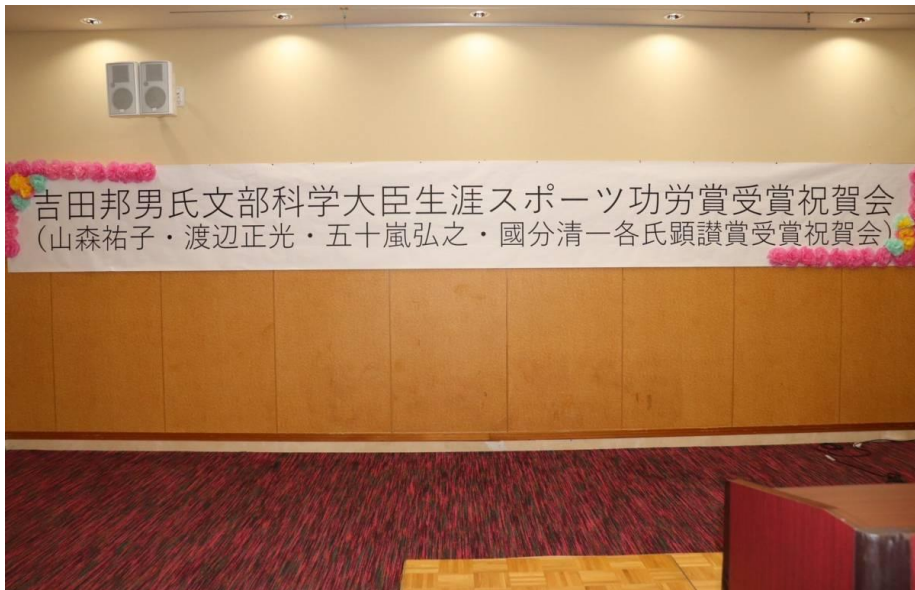 吉田邦男氏文部科学大臣生涯スポーツ功労賞受賞祝賀会
(山森祐子・渡辺正光・五十嵐弘之・國分清一各氏顕讃賞受賞祝賀会)